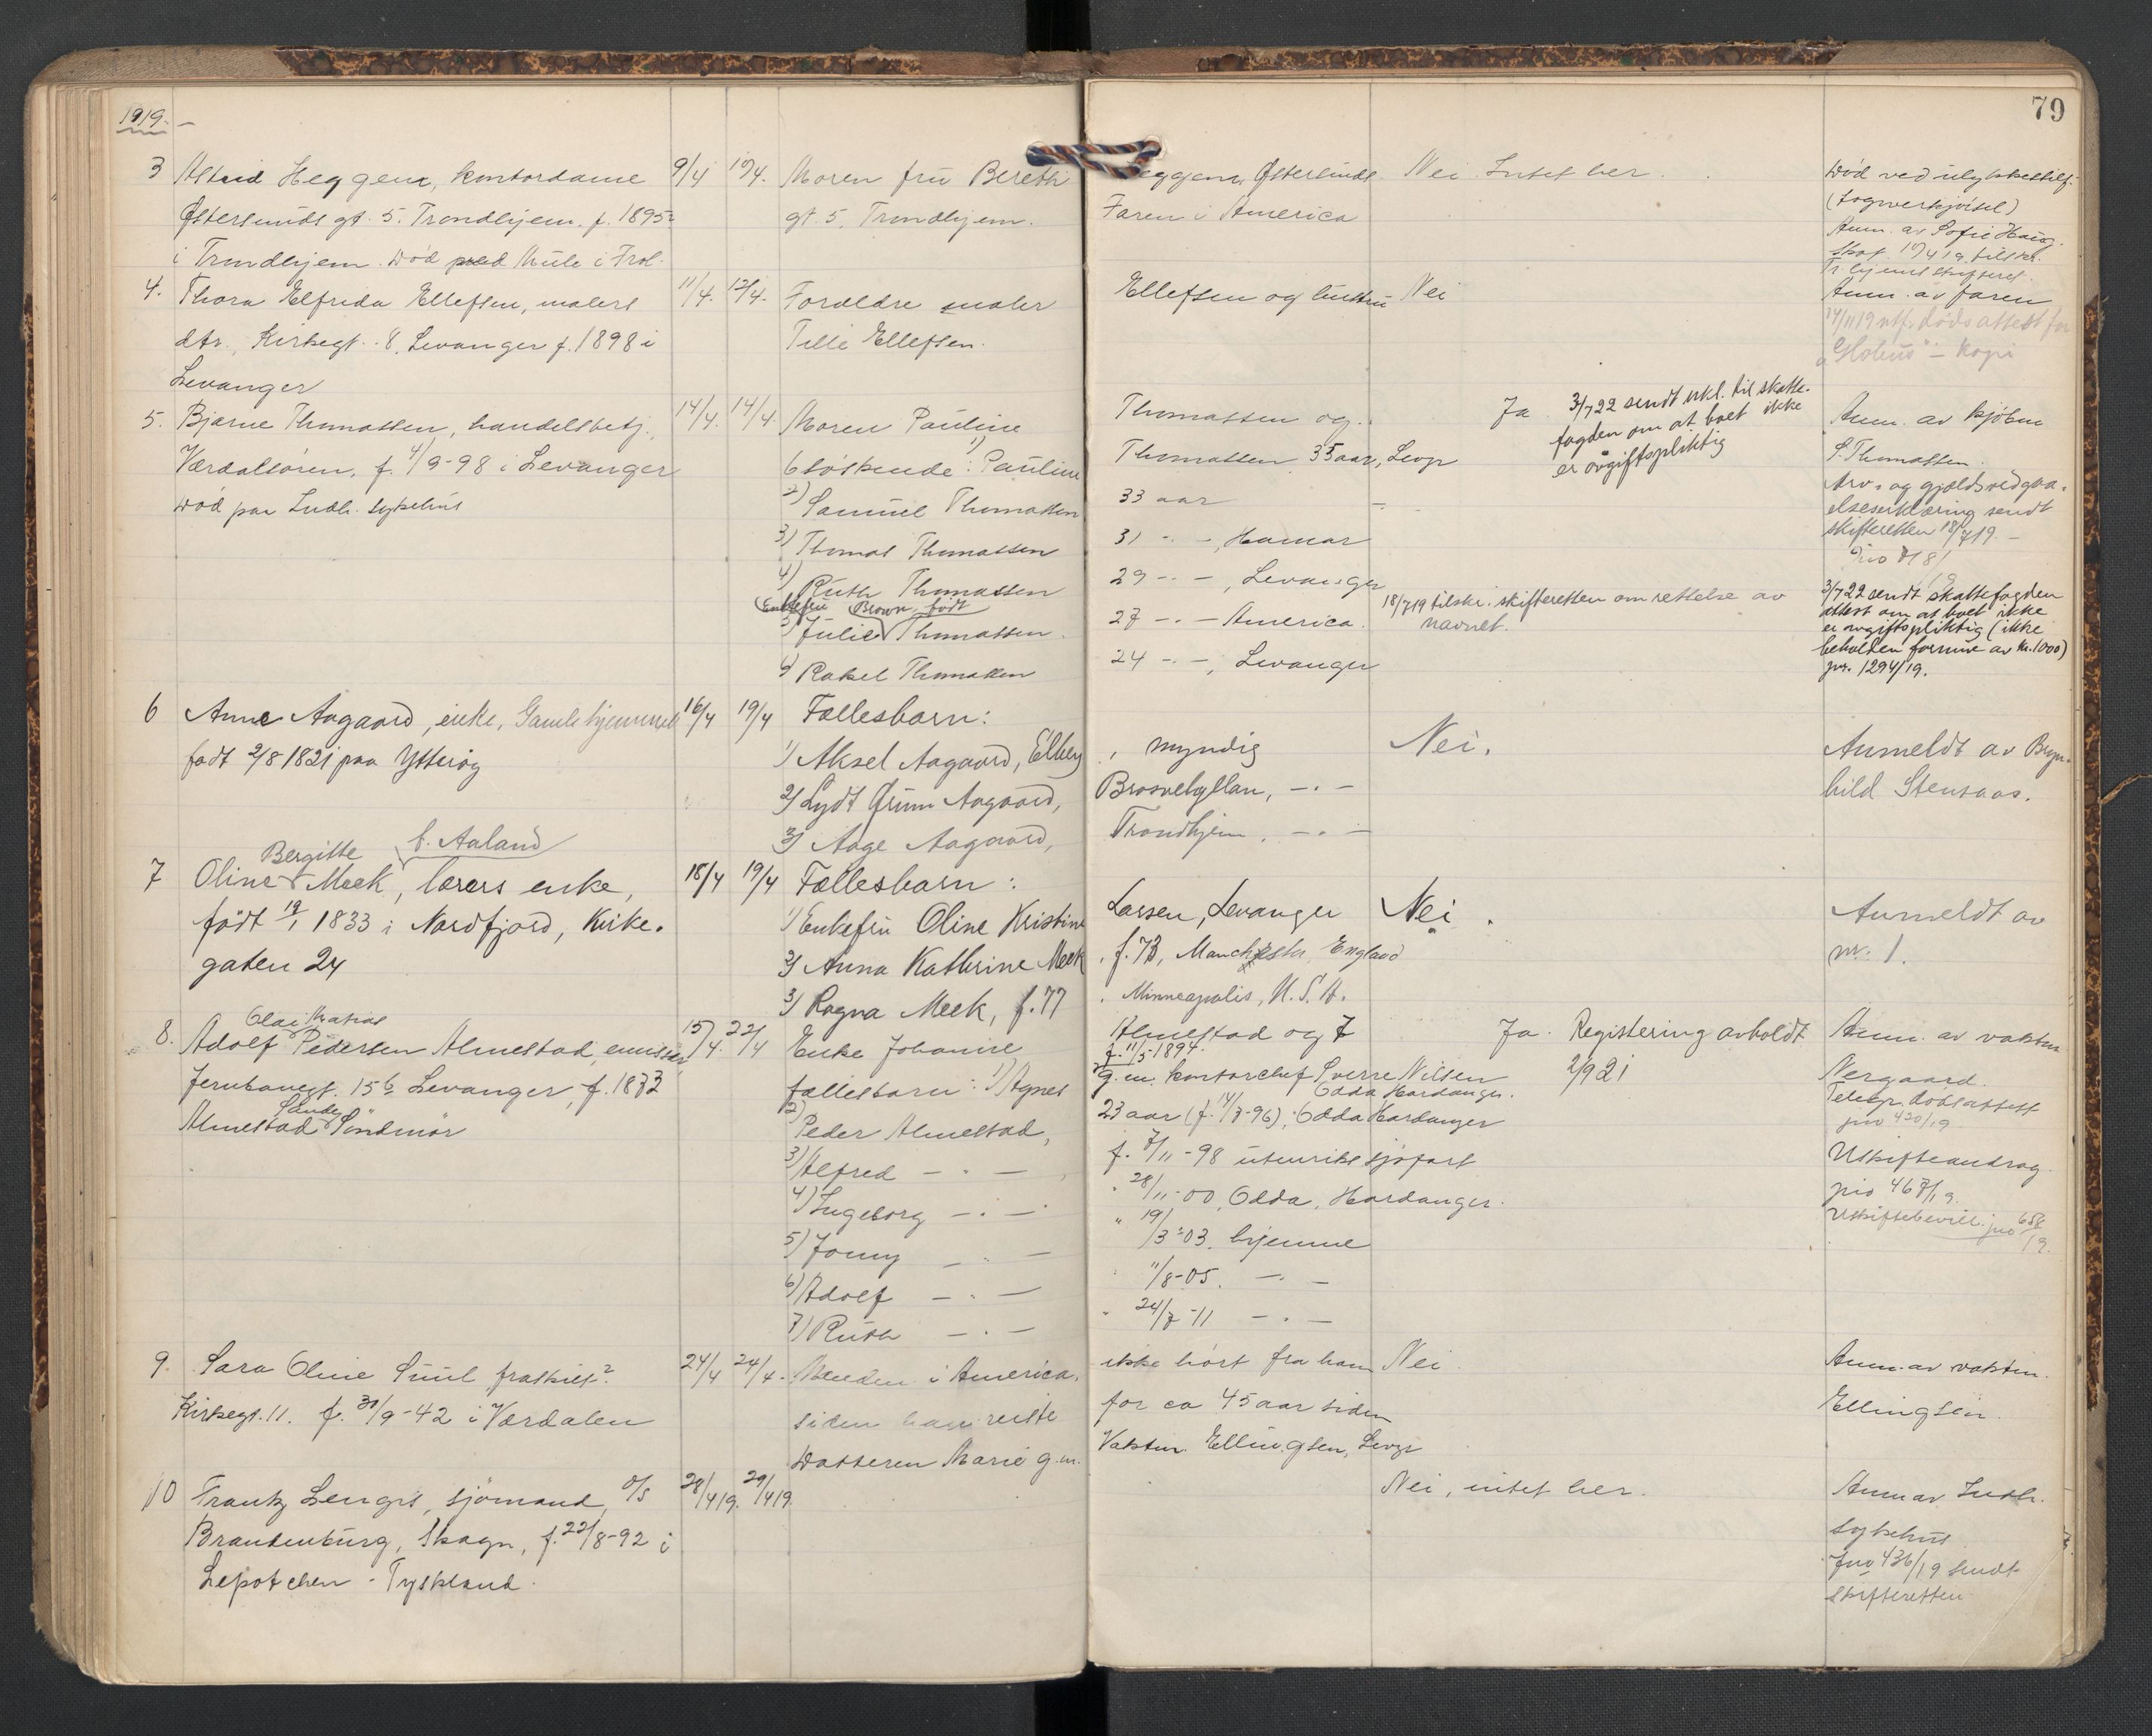 79
1919. —
3 Astrid Heggem, kontordame 9/4 10/4. Moren fru Bereth Heggem, Østersunds Nei. Intet her.
Østersunds gt. 5. Trondhjem. f. 1895 gt. 5, Trondhjem. Faren i America
i Trondhjem. Død ved Mule i Frol.
Død ved ulykkestilf.
Anm. av Sofie Haug.
Skog. 10/4 19 tilskr.
Tr.hjems skifteret.
4. Thora Elfrida Ellefsen, malers 11/4. 12/4. Forældre maler Ellefsen og hustru Nei
dtr. Kirkegt. 8, Levanger f. 1898 i Tilie Ellefsen.
Levanger
Anm. av faren
14/11 19 utf. dødsattest for
"Globus" - Kopi
5. Bjarne Thomassen, handelsbetj., 14/4. 14/4 Moren Pauline Thomassen og Ja. 3/7 22 sendt erkl. til skatte-
fogden om at boet ikke
er avgiftspliktig
Værdalsøren, f. 4/9-98 i Levanger 6 søskende: 1) Pauline Thomassen 35 aar, Levgr
Død paa Indh. sykehus 2) Samuel Thomassen 33 aar —
3) Thomas Thomassen 31 -"-, Hamar
4) Ruth Thomassen 29 -"-, Levanger
(Enkefru Brown, født
5) Julie Thomassen 27 -"- America. 18/7 19 tilskr. skifteretten om rettelse av
navnet.
6) Rakel Thomassen 24 -"-, Levanger
Anm. av kjøbm
S. Thomassen.
Arv- og gjeldsvedgaa-
elseserklæring sendt
skifteretten 18/7 19. —
3/7 22 sendt skattefogden
attest om at boet ikke
er avgiftspliktig (ikke
beholden formue av kr. 1000)
jnr. 1294/19.
6 Anne Aagaard, enke, Gamlehjemmet 16/4 19/4 Fællesbarn:
født 2/8 1821 paa Ytterøy 1) Aksel Aagaard, Elberg, myndig Nei.
2) Lydt Grim Aagaard, Brosvehyllan, -"-
3) Aage Aagaard, Trondhjem, -"-
Anmeldt av Bryn-
hild Stensaas.
Bergitte f. Aaland
7 Oline Meek, lærers enke, 18/4 19/4 Fællesbarn:
født 19/1 1833 i Nordfjord, Kirke- 1) Enkefru Oline Kristine Larsen, Levanger Nei.
gaten 24 2) Anna Kathrine Meek, f. 73, Manchester, England
3) Ragna Meek, f. 77, Minneapolis, U.S.A.
Anmeldt av
nr. 1.
Olai Matias
8. Adolf Pedersen Almestad, emissær 15/4. 22/4 Enke Johanne Almestad og 7 Ja. Registering avholdt
f. 11/5-1894.
Jernbanegt. 15b Levanger, f. 1873 fællesbarn: 1) Agnes g. m. kontorchef Sverre Nilsen 2/9 21
Odda Hardanger.
Sande
Almestad Søndmør 2) Peder Almestad, 23 aar (f. 14/3-96), Odda Hardanger
3) Alfred -"-, f. 7/11-98 utenriks sjøfart
4) Ingeborg -"- " 28/11-00, Odda, Hardanger.
5) Jonny -"- " 19/3-03. hjemme
6) Adolf -"- " 11/8-05. -"-
7) Ruth -"- " 24/7-11 -"-
Anm. av vaktm.
Nergaard.
Telegr. dødsattest
jno 420/19.
Uskifteandrag
jno 467/19.
Uskiftebevill. jno 658/19.
9. Sara Oline Suul fraskilt? 24/4 24/4. Manden i America, ikke hørt fra ham Nei.
Kirkegt. 11. f. 30/9-42 i Værdalen siden han reiste for ca 45 aar siden
Datteren Marie g. m. Vaktm. Ellingsen, Levgr
Anm. av vaktm.
Ellingsen.
10 Frantz Lengis, sjømand, D/S 28/4 19. 29/4 19. Nei, intet her.
Brandenburg, Skogn, f. 22/8-92 i
Lepotchen - Tyskland.
Anm av Indh.
sykehus
Jno 436/19 sendt
skifteretten